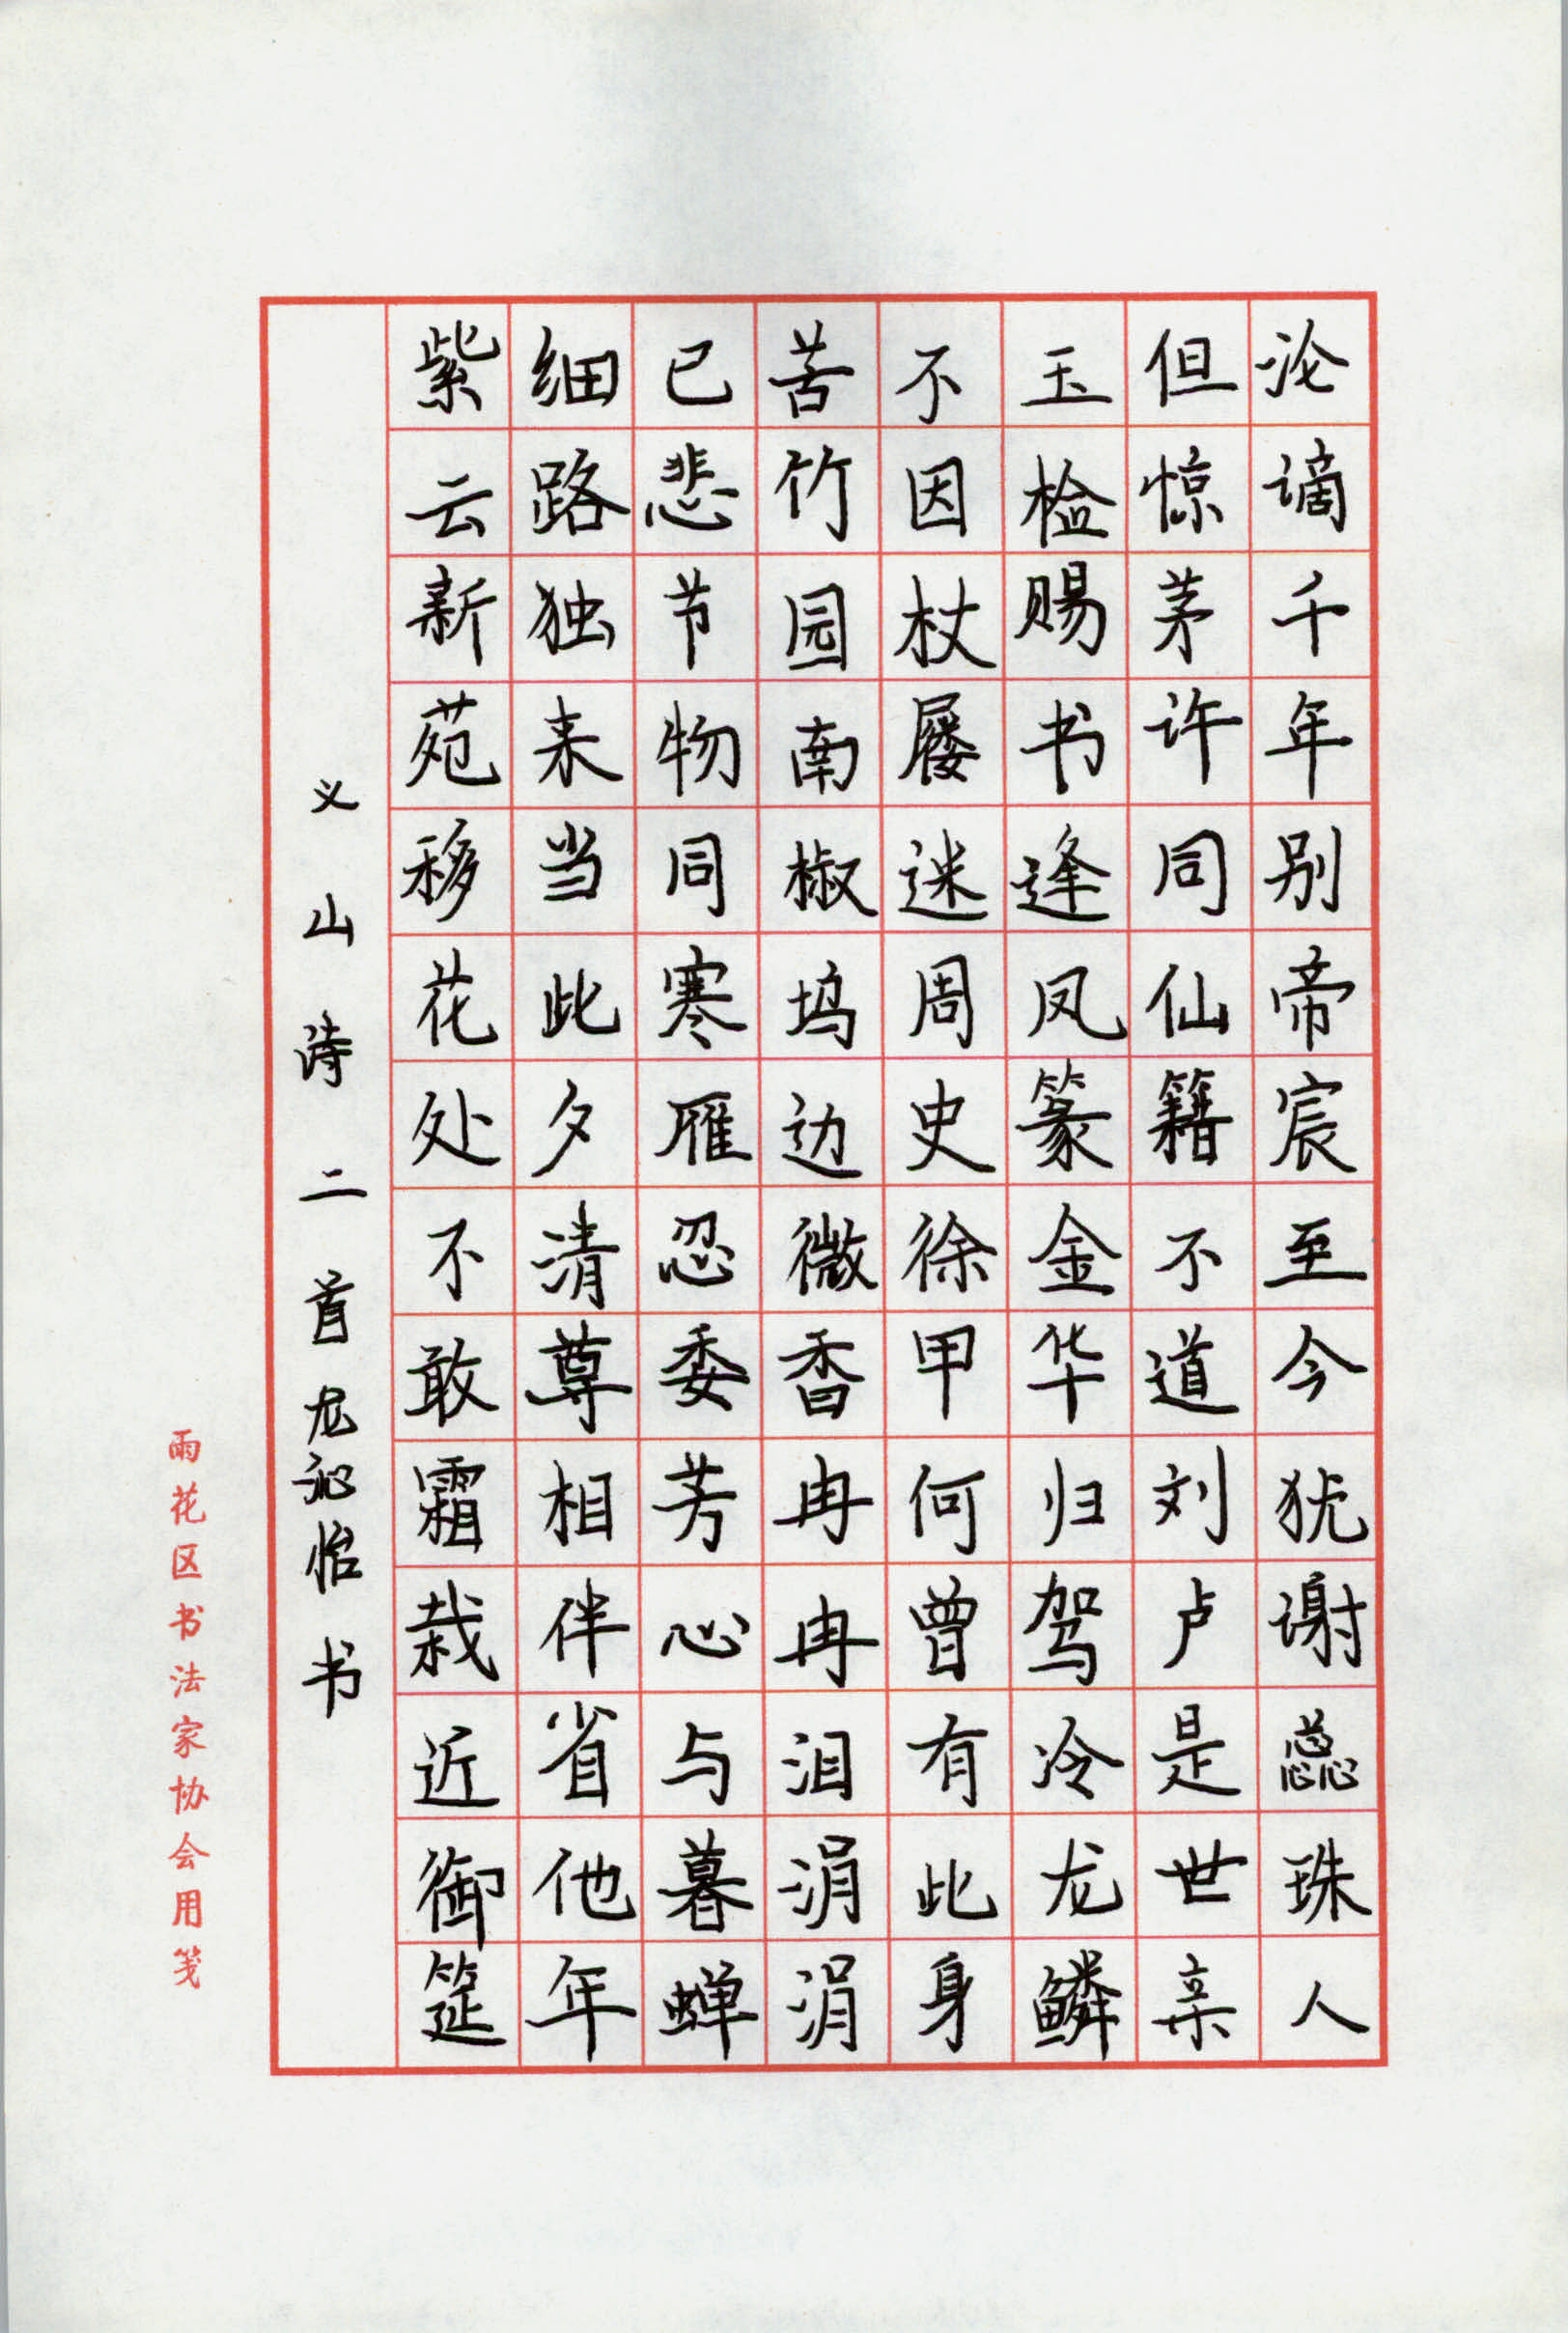 沦谪千年别帝宸至今犹谢蕊珠人
但惊茅许同仙籍不道刘卢是世亲
玉检赐书逢凤篆金华归驾冷龙鳞
不因杖屦迷周史徐甲何曾有此身
苦竹园南椒坞边微香冉冉泪涓涓
已悲节物同寒雁忍委芳心与暮蝉
细路独来当此夕清尊相伴省他年
紫云新苑移花处不敢霜栽近御筵
义山诗二首龙沁怡书
雨花区书法家协会用笺